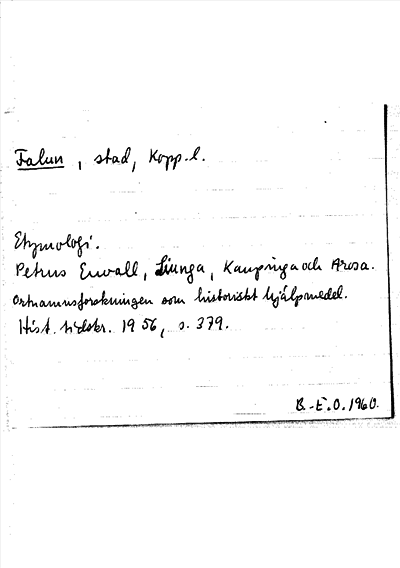 Falun, stad, Kopp.l.
Etymologi.
Petrus Envall, Liunga, Kaupinga och Arosa.
Ortnamnsforskningen som historiskt hjälpmedel.
Hist. tidskr. 1956, s. 379.
B.-E.O. 1960.